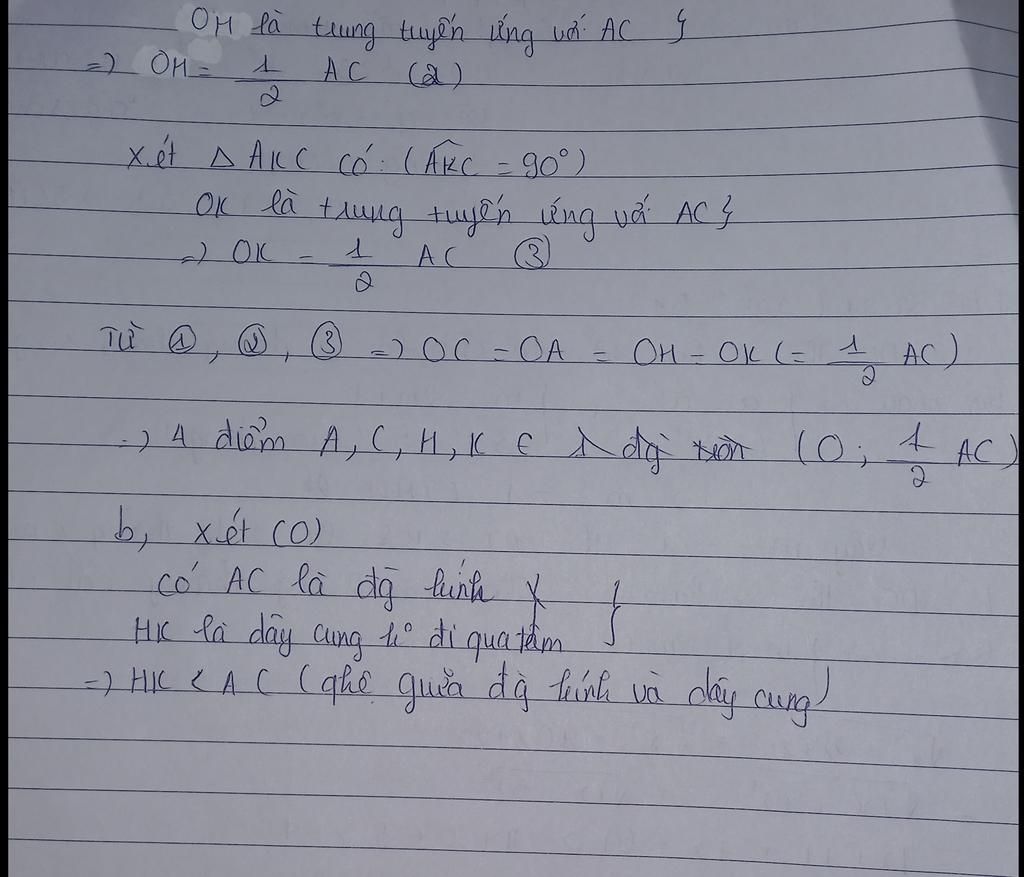 OH là trung tuyến ứng với AC }
=> OH = 1/2 AC (2)
Xét △ AKC có: (AKC = 90°)
OK là trung tuyến ứng với AC }
=> OK = 1/2 AC ③
Từ ①, ②, ③ => OC = OA = OH = OK (= 1/2 AC)
=> 4 điểm A, C, H, K ∈ (O; 1/2 AC)
b, Xét (O)
có AC là đg̀ kính }
HK là dây cung ko đi qua tâm
=> HK < AC (qhệ giữa đg̀ kính và dây cung)